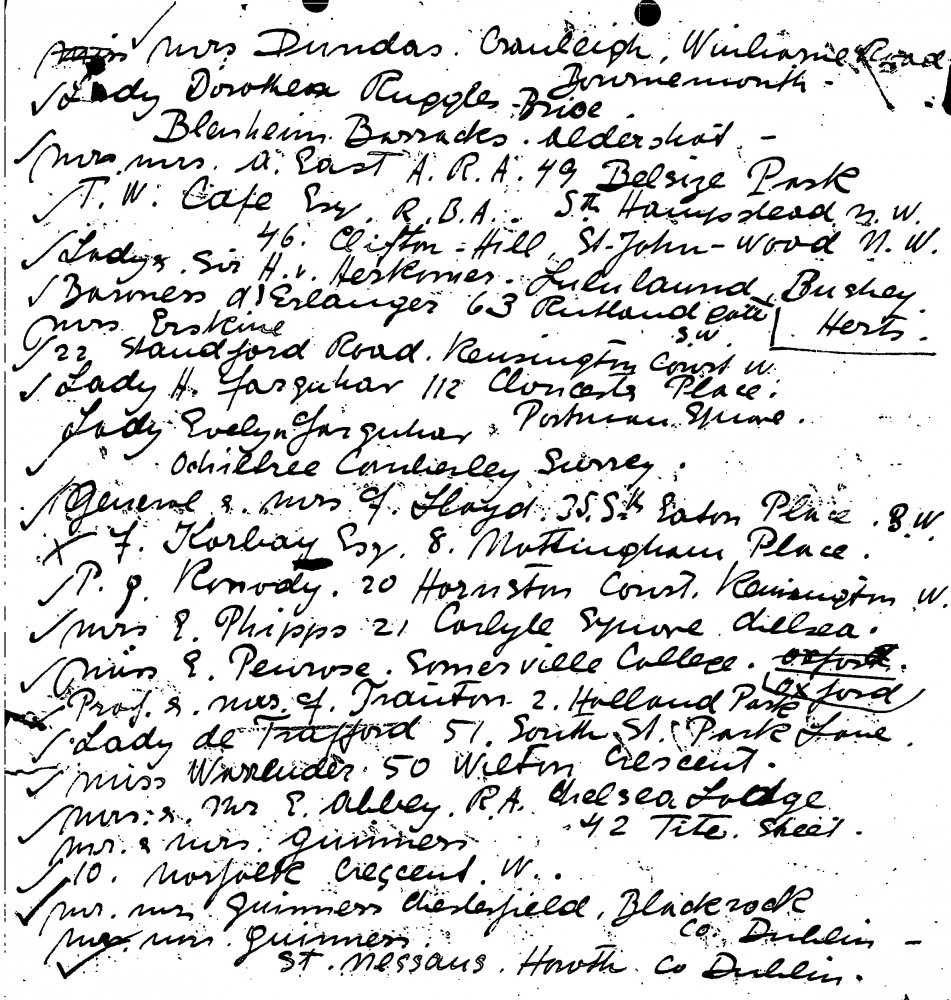 Mrs Dundas. Cranleigh, Wimborne Road
Bournemouth -
Lady Dorothea Ruggles-Brise
Blenheim Barracks. Aldershot -
Mr. Mrs. A. East A.R.A. 49 Belsize Park
T. W. Cafe Esq. R.B.A. Sth Hampstead N.W.
46. Clifton-Hill, St-John-Wood N.W.
Lady & Sir H. v. Herkomer. Lululaund, Bushey
Herts.
Baroness d'Erlanger 63 Rutland Gate
S.W.
Mrs Erskine
22 Standford Road. Kensington Court W
Lady H. Farquhar 112 Place.
Portman Square.
Lady Evelyn Farquhar
Ochiltree Camberley Surrey.
General & Mrs F. Lloyd. 35. Sth Eaton Place. S.W.
F. Korbay Esq. 8. Nottingham Place.
P. G. Konody. 20 Hornston Court. Kensington W.
Mrs E. Phipps 21 Carlyle Square Chelsea.
Miss E. Penrose. Somerville College. Oxford
Prof. & Mrs. F. Trouton 2. Holland Park
Lady de Trafford 51. South St. Park Lane.
Miss Warrender. 50 Wilton Crescent.
Mrs. & Mr E. Abbey. R.A. Chelsea Lodge
42 Tite. Street.
Mr. & Mrs. Guinness
10. Norfolk Crescent. W..
Mr. Mrs Guinness Chesterfield, Blackrock
Co. Dublin -
Mrs. Guinness.
St. Nessans. Howth. Co Dublin.